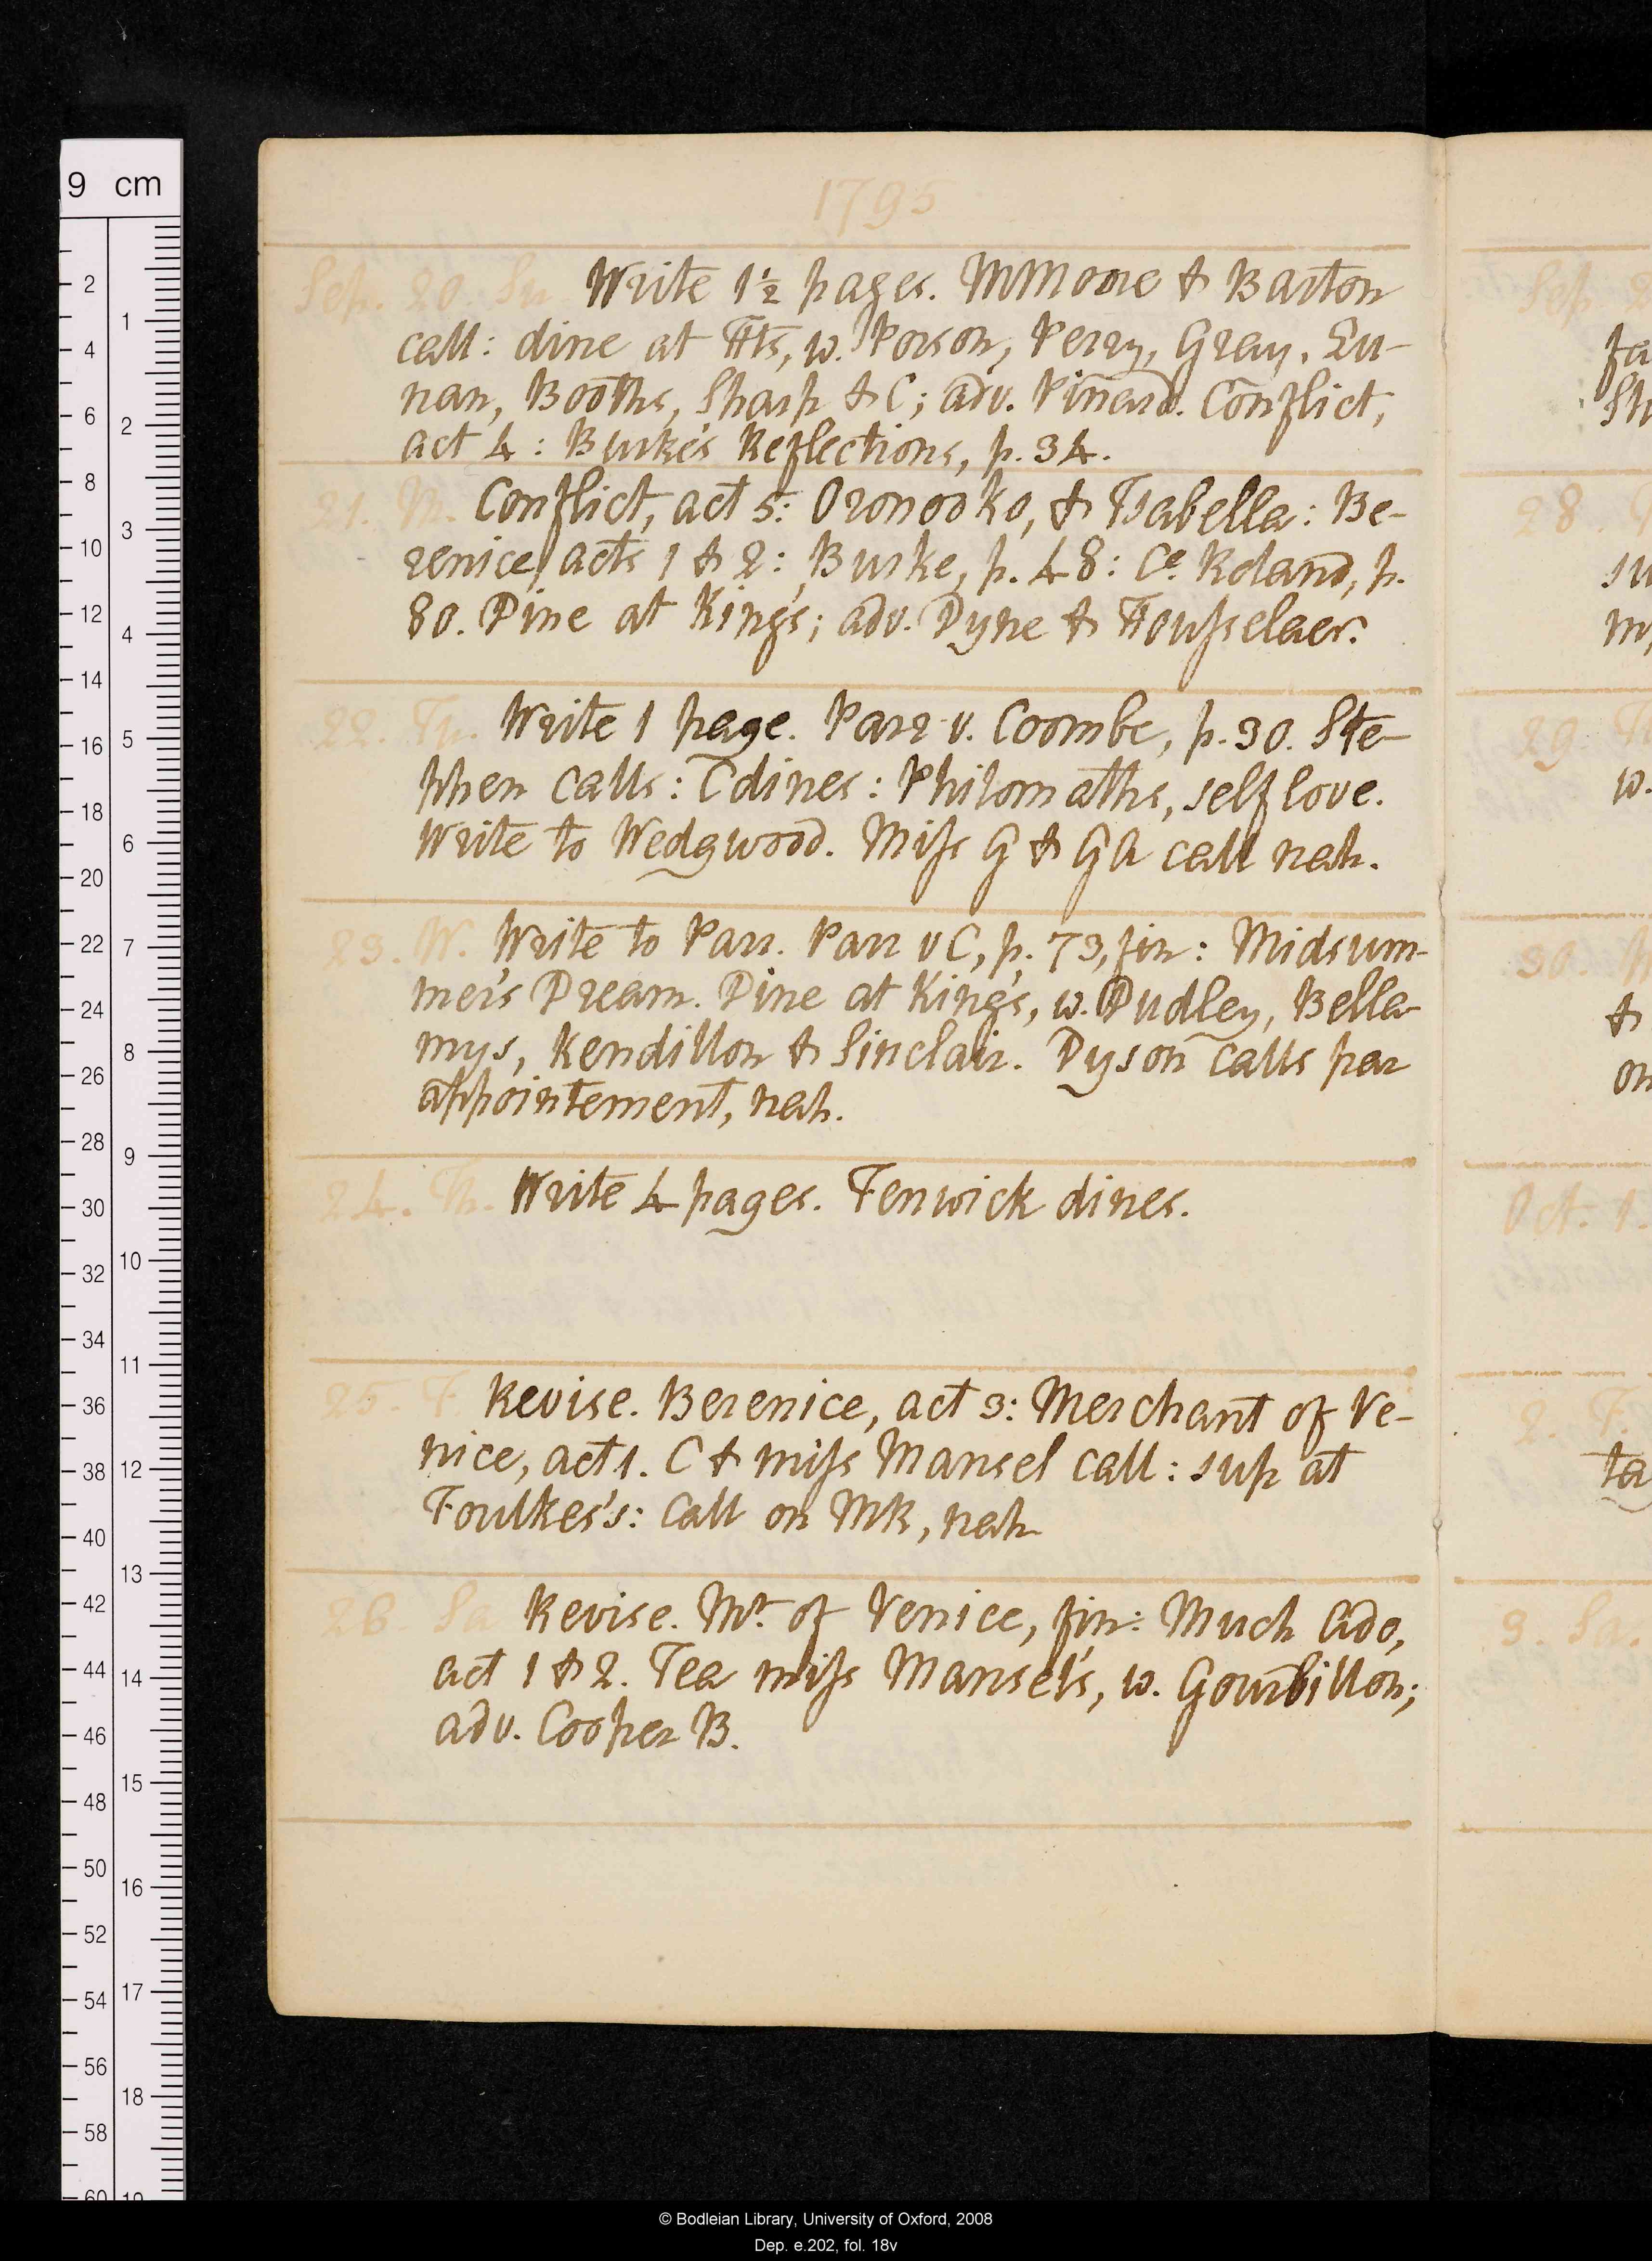 1795
Sep. 20. Su Write 1½ pages. MMoore & Barton
call: dine at Hts, w. Porson, Perry, Gray, Lu-
nan, Booths, Sharp & C; adv. Pinard. Conflict,
act 4: Burke's Reflections, p. 34.
21. M. Conflict, act 5: Oronooko, & Isabella: Be-
renice, acts 1 & 2: Burke, p. 48: Ce. Roland, p.
80. Dine at King's; adv. Dyne & Housselaer.
22. Tu. Write 1 page. Parr v. Coombe, p. 30. Ste-
phen calls: C dines: Philomaths, self love.
Write to Wedgwood. Miss G & GA call nah.
23. W. Write to Parr. Parr v C, p. 73, fin: Midsum-
mer's Dream. Dine at King's, w. Dudley, Bella-
mys, Kendillon & Sinclair. Dyson calls par
appointement, nah.
24. Th. Write 4 pages. Fenwick dines.
25. F. Revise. Berenice, act 3: Merchant of Ve-
nice, act 1. C & miss Mansel call: sup at
Foulkes's: call on MR, nah
26. Sa Revise. Mr. of Venice, fin: Much Ado,
act 1 & 2. Tea miss Mansel's, w. Gourbillon;
adv. Cooper B.
Sep. 2
fa
Sh
28.
su
m
29. T
w.
30.
&
on
Oct. 1.
2. F.
ta
3. Sa.
9 cm
2
4
6
8
10
12
14
16
18
20
22
24
26
28
30
32
34
36
38
40
42
44
46
48
50
52
54
56
58
60
1
2
3
4
5
6
7
8
9
10
11
12
13
14
15
16
17
18
19
© Bodleian Library, University of Oxford, 2008
Dep. e.202, fol. 18v